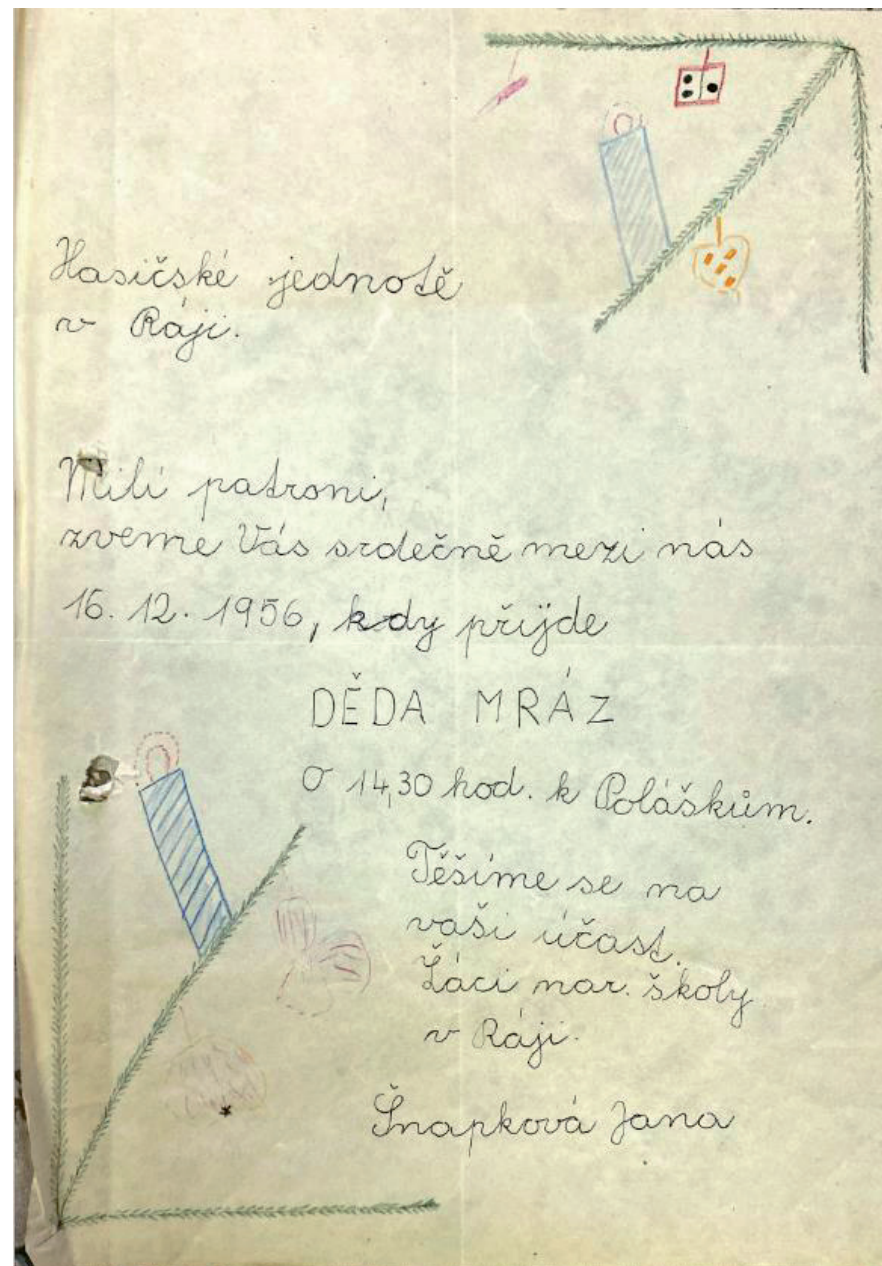 Hasičské jednotě
v Ráji.
Milí patroni,
zveme Vás srdečně mezi nás
16. 12. 1956, kdy přijde
DĚDA MRÁZ
O 14,30 hod. k Poláškům.
Těšíme se na
vaši účast.
Žáci nar. školy
v Ráji.
Šnapková Jana